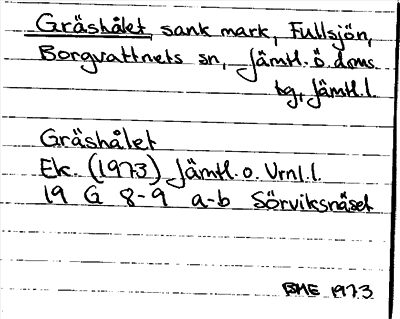 Gräshålet, sank mark, Fullsjön,
Borgvattnets sn, Jämtl. Ö. doms.
tg, Jämtl.l.
Gräshålet
Ek. (1973) Jämtl. o. Vrnl.l.
19 G 8-9 a-b Sörviksnäset
BME 1973